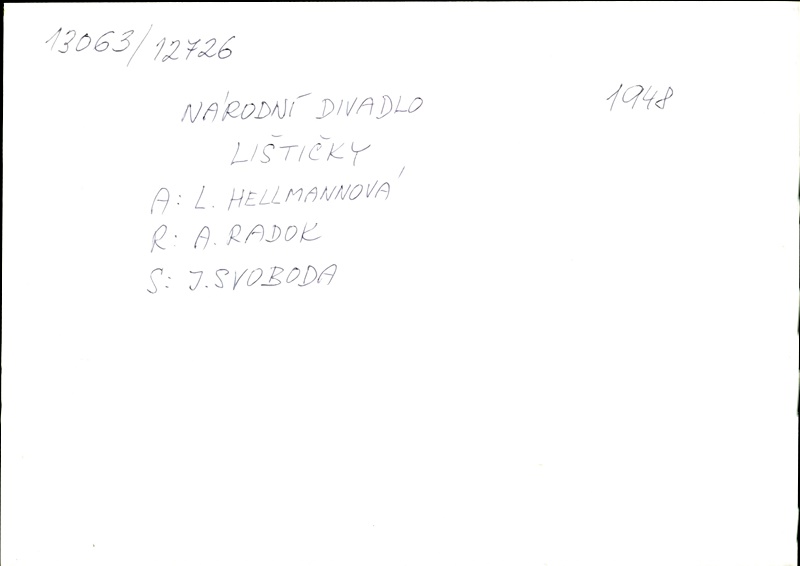 13063/12726
NÁRODNÍ DIVADLO 1948
LIŠTIČKY
A: L. HELLMANNOVÁ
R: A. RADOK
S: J. SVOBODA